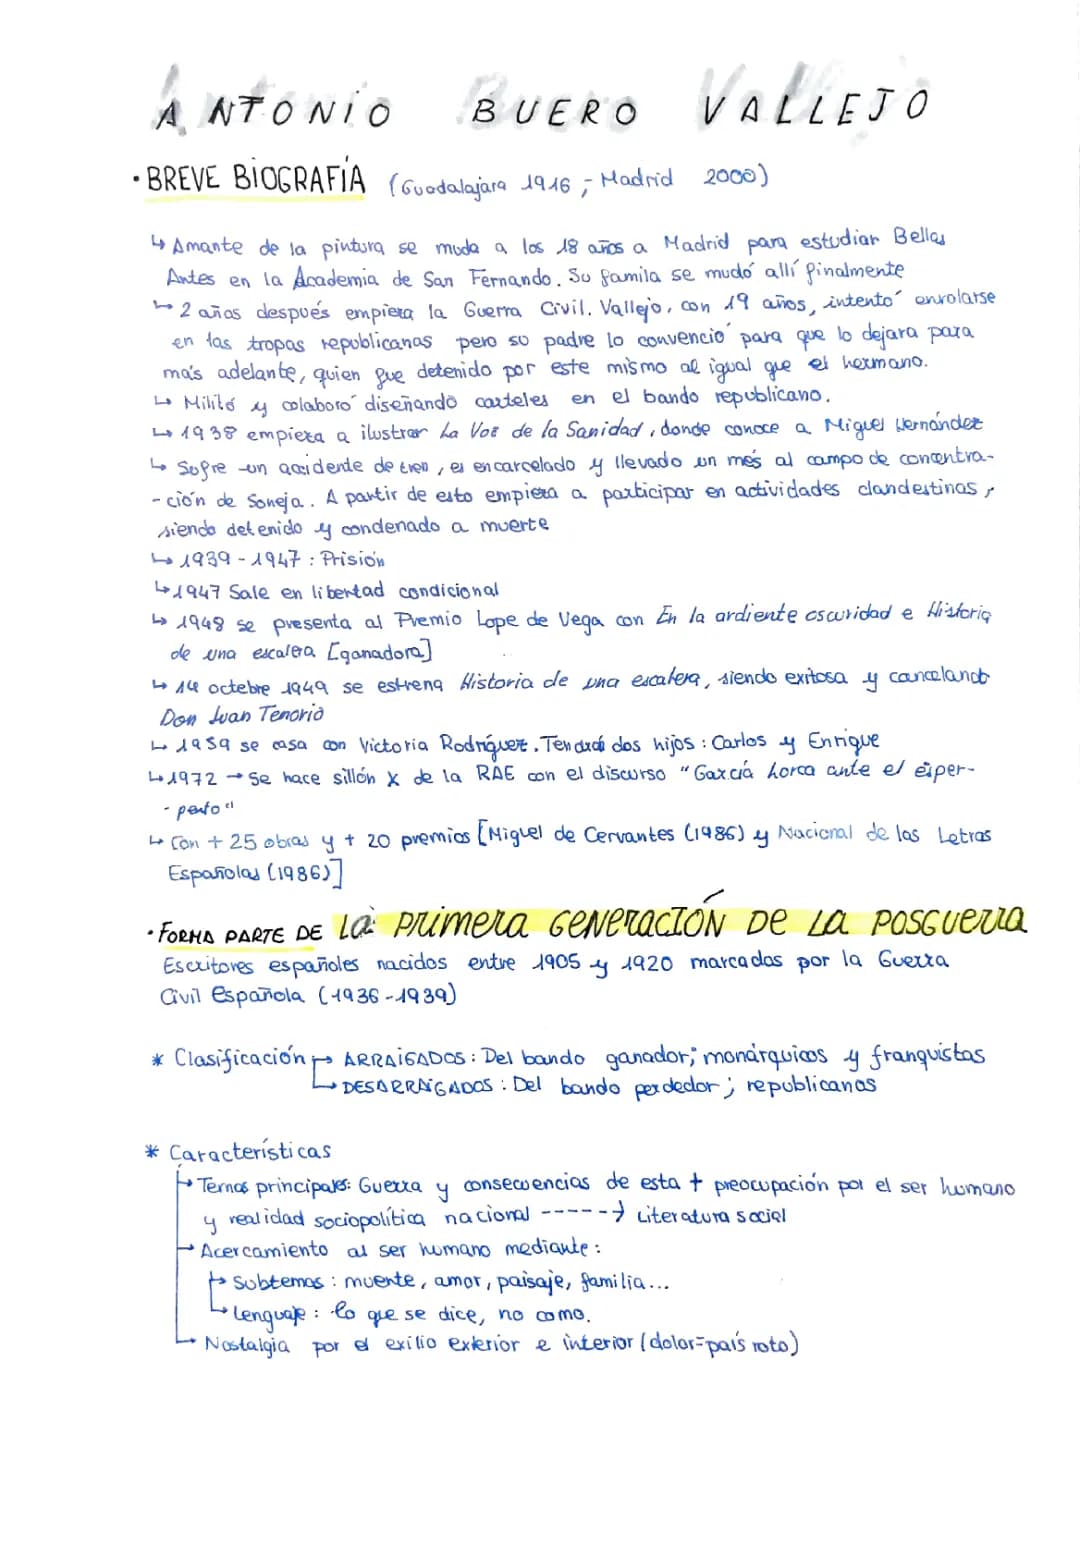 ANTONIO BUERO VALLEJO
• BREVE BIOGRAFÍA (Guadalajara 1916; Madrid 2000)
↳ Amante de la pintura se muda a los 18 años a Madrid para estudiar Bellas
Artes en la Academia de San Fernando. Su famila se mudó allí finalmente
↳ 2 años después empieza la Guerra Civil. Vallejo, con 19 años, intentó enrolarse
en las tropas republicanas pero su padre lo convenció para que lo dejara para
más adelante, quien fue detenido por este mismo al igual que el hermano.
↳ Militó y colaboró diseñando carteles en el bando republicano.
↳ 1938 empieza a ilustrar La Voz de la Sanidad, donde conoce a Miguel Hernández
↳ Sofre un accidente de tren, es encarcelado y llevado un mes al campo de concentra-
-ción de Soneja. A partir de esto empieza a participar en actividades clandestinas,
siendo detenido y condenado a muerte
↳ 1939-1947: Prisión
↳ 1947 Sale en libertad condicional
↳ 1948 se presenta al Premio Lope de Vega con En la ardiente oscuridad e Historia
de una escalera [ganadora]
↳ 14 octebre 1949 se estrena Historia de una escalera, siendo exitosa y cancelando
Don Juan Tenorio
↳ 1959 se casa con Victoria Rodríguez. Tendrá dos hijos: Carlos y Enrique
↳ 1972 → Se hace sillón X de la RAE con el discurso "García Lorca ante el esper-
-pento"
↳ Con + 25 obras y + 20 premios [Miguel de Cervantes (1986) y Nacional de las Letras
Españolas (1986)]
• FORMA PARTE DE La primera GENERACIÓN DE La POSGUERRA
Escritores españoles nacidos entre 1905 y 1920 marcados por la Guerra
Civil Española (1936-1939)
* Clasificación → ARRAIGADOS: Del bando ganador; monárquicos y franquistas
→ DESARRAIGADOS: Del bando perdedor; republicanos
* Características
→ Temas principales: Guerra y consecuencias de esta + preocupación por el ser humano
y realidad sociopolítica nacional -----→ Literatura social
→ Acercamiento al ser humano mediante:
→ Subtemas: muerte, amor, paisaje, familia...
→ Lenguaje: lo que se dice, no como.
→ Nostalgia por el exilio exterior e interior (dolor=país roto)